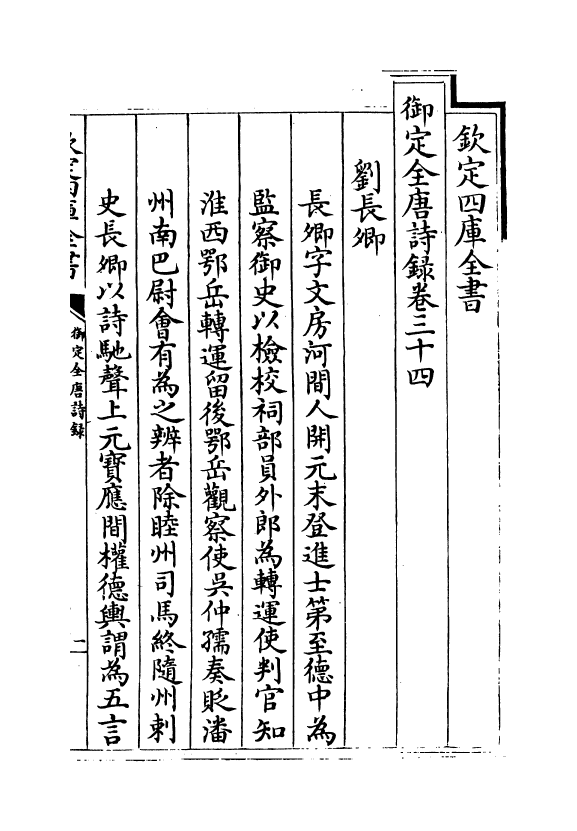 欽定四庫全書
御定全唐詩録卷三十四
劉長卿
長卿字文房河間人開元末登進士第至德中為
監察御史以檢校祠部員外郎為轉運使判官知
淮西鄂岳轉運留後鄂岳觀察使吳仲孺奏貶潘
州南巴尉會有為之辨者除睦州司馬終隨州刺
史長卿以詩馳聲上元寶應間權德輿謂為五言
欽定四庫全書
御定全唐詩録